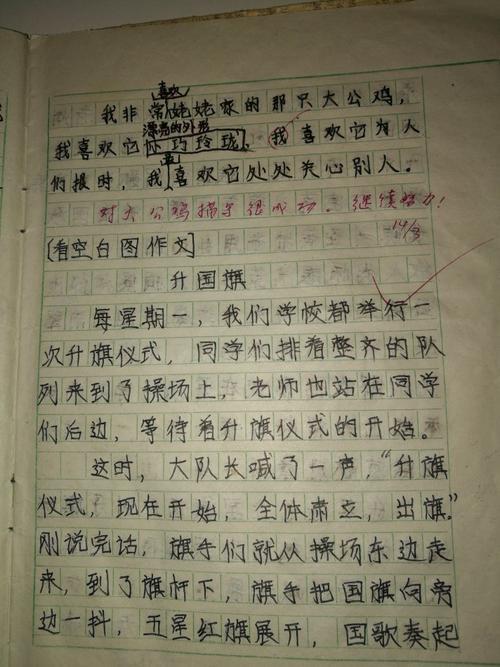 喜欢
我非常姥姥家的那只大公鸡，
漂亮的外形
我喜欢它小巧玲珑，我喜欢它为人
更
们报时，我喜欢它处处关心别人。
对大公鸡描写很成功。继续努力！
14/3
[看空白图作文]
升国旗
每星期一，我们学校都举行一
次升旗仪式，同学们排着整齐的队
列来到了操场上，老师也站在同学
们后边，等待着升旗仪式的开始。
这时，大队长喊了一声，“升旗
仪式，现在开始，全体肃立，出旗。”
刚说完话，旗手们就从操场东边走
来，到了旗杆下，旗手把国旗向旁
边一抖，五星红旗展开，国歌奏起